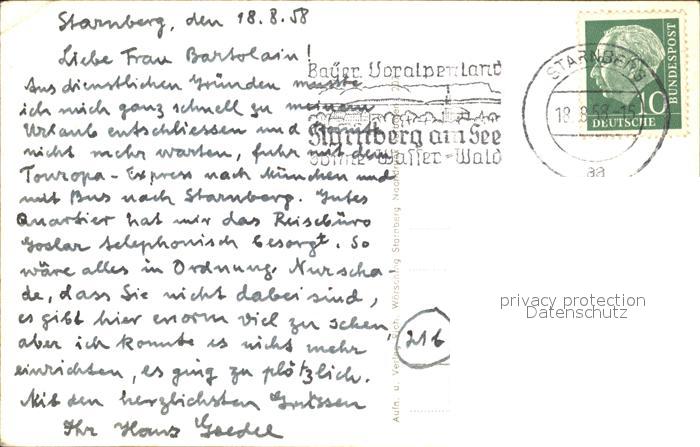 Starnberg, den 18.8.58
Liebe Frau Bartolain!
Aus dienstlichen Gründen musste
ich mich ganz schnell zu meinem
Urlaub entschliessen und konnte
nicht mehr warten, fuhr mit dem
Touropa-Express nach München und
mit Bus nach Starnberg. Gutes
Quartier hat mir das Reisebüro
Goslar telephonisch besorgt. So
wäre alles in Ordnung. Nur scha-
de, dass Sie nicht dabei sind,
es gibt hier enorm viel zu sehen,
aber ich konnte es nicht mehr
einrichten, es ging zu plötzlich.
Mit den herzlichsten Grüssen
Ihr Hans Goedel
Bayer. Voralpenland
Starnberg am See
Sonne-Wasser-Wald
STARNBERG
18.8.58-15
aa
10
DEUTSCHE
BUNDESPOST
Aufn. u. Verlag Rich. Wörsching Starnberg
216
privacy protection
Datenschutz